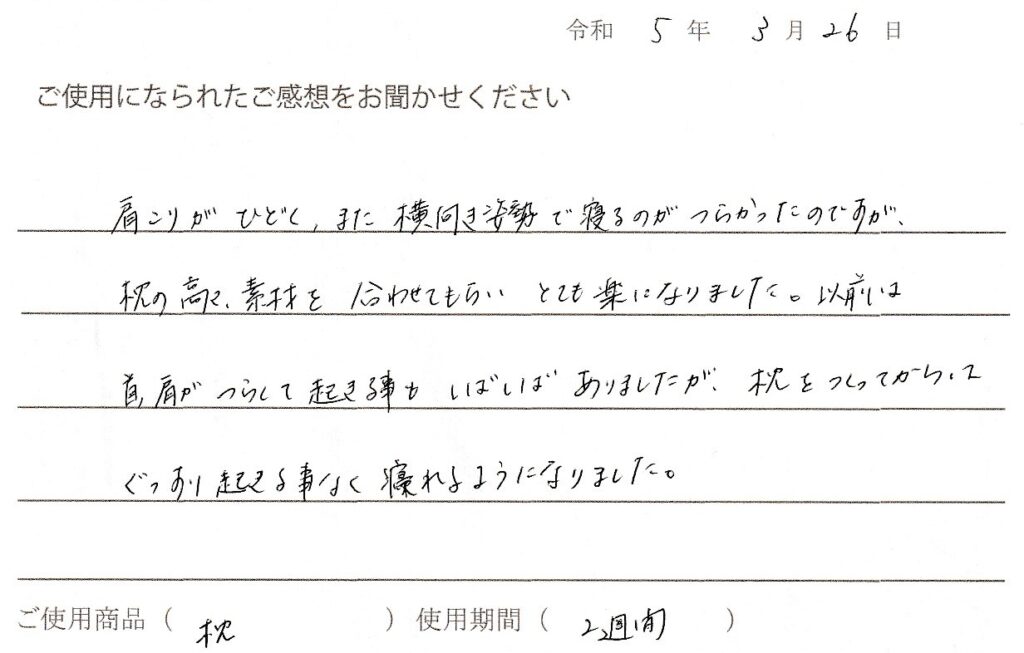 令和 5 年 3 月 26 日
ご使用になられたご感想をお聞かせください
肩こりがひどく、また横向き姿勢で寝るのがつらかったのですが、
枕の高さ、素材を合わせてもらいとても楽になりました。以前は
首、肩がつらくて起きる事もしばしばありましたが、枕をつくってからは
ぐっすり起きる事なく寝れるようになりました。
ご使用商品（ 枕 ）使用期間（ 2週間 ）